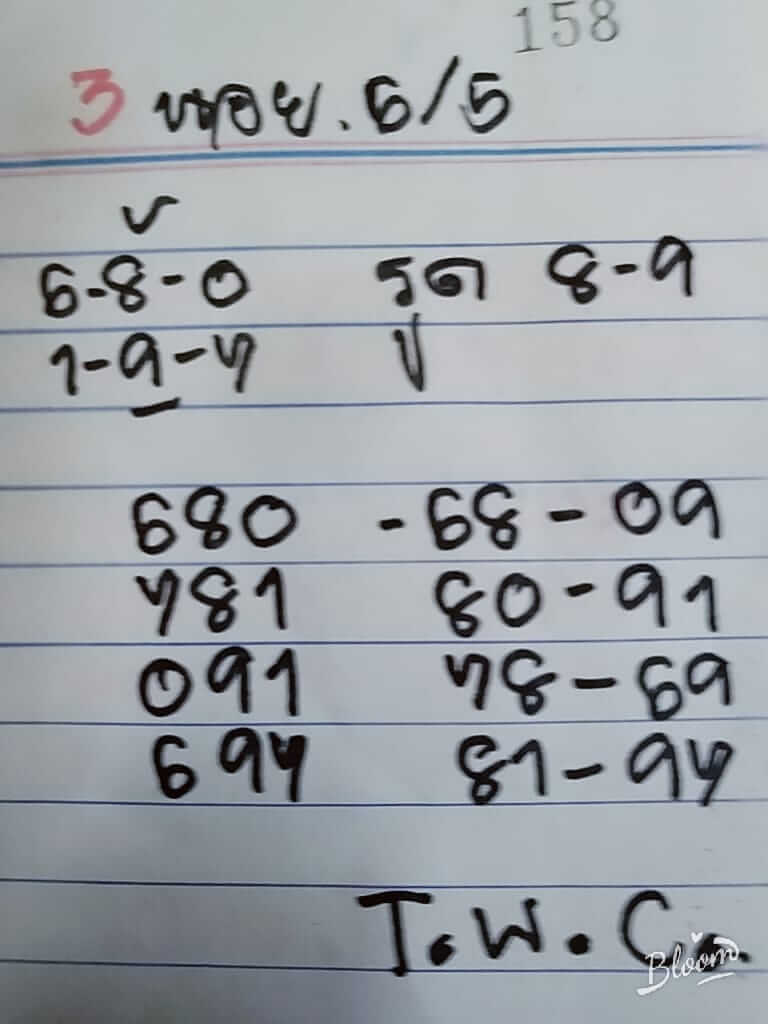 158
3 หุอย. 6/5
6-8-0 รูด 8-9
1-9-7
680 - 68 - 09
781 80 - 91
091 78 - 69
697 81 - 97
T.W.C.
Bloom